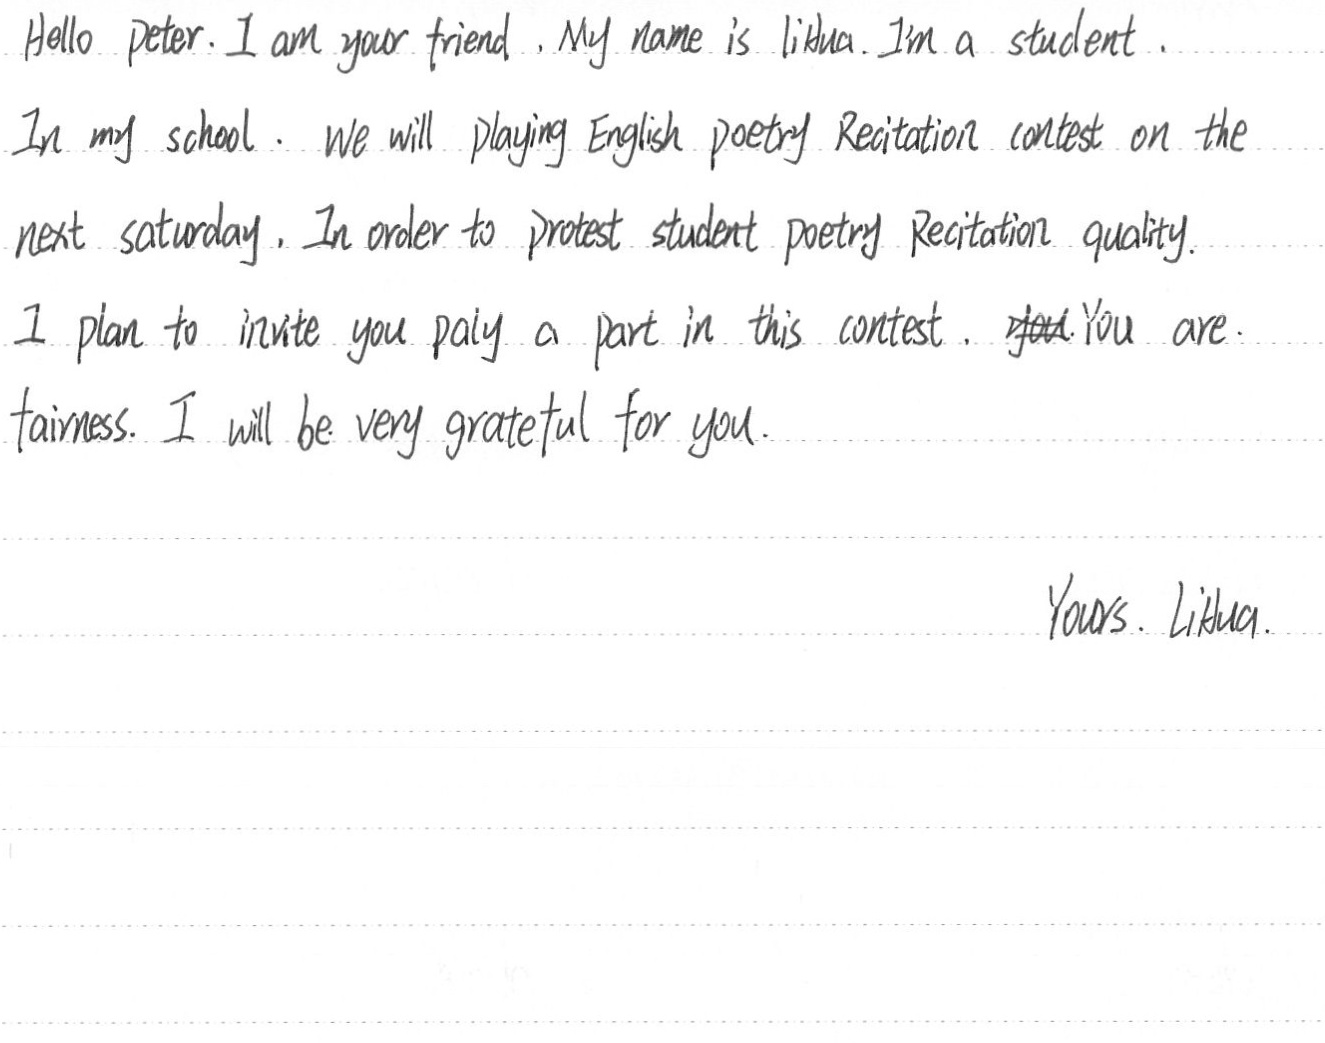 Hello peter. I am your friend. My name is liHua. I'm a student.
In my school. We will playing English poetry Recitation contest on the
next saturday. In order to protest student poetry Recitation quality.
I plan to invite you paly a part in this contest. You are.
fairness. I will be very grateful for you.
Yours. LiHua.